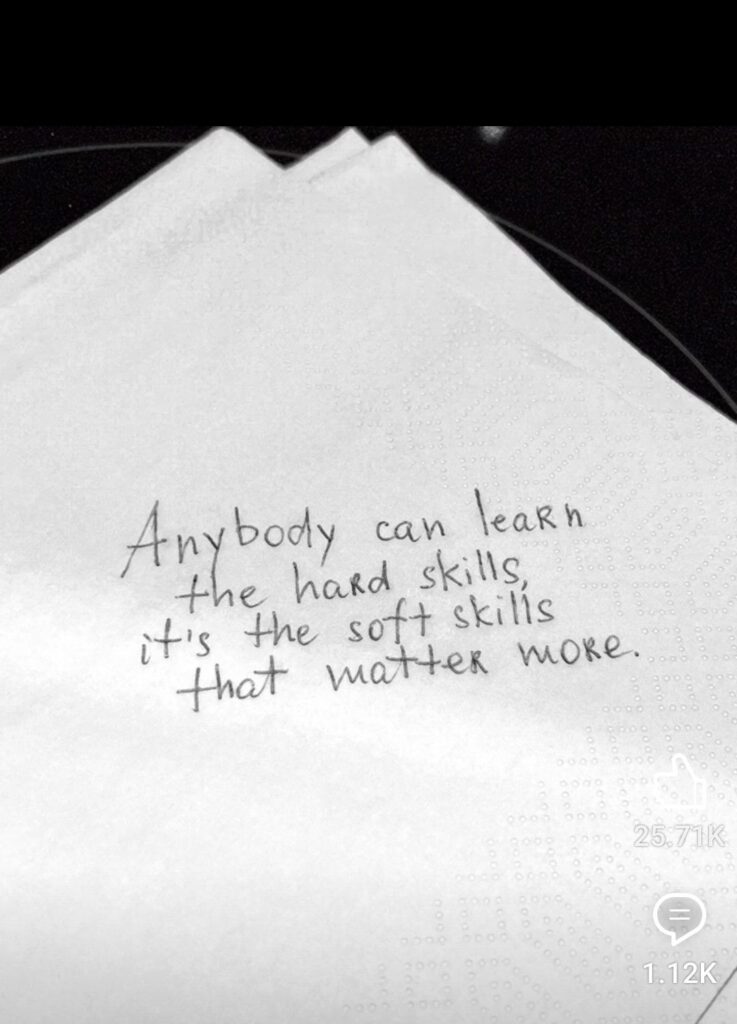 Anybody can learn
the hard skills,
it's the soft skills
that matter more.
25.71K
1.12K